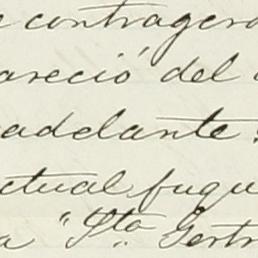 e contragero
areció del
eadelante
ctual fuque
a "Sta Gertr